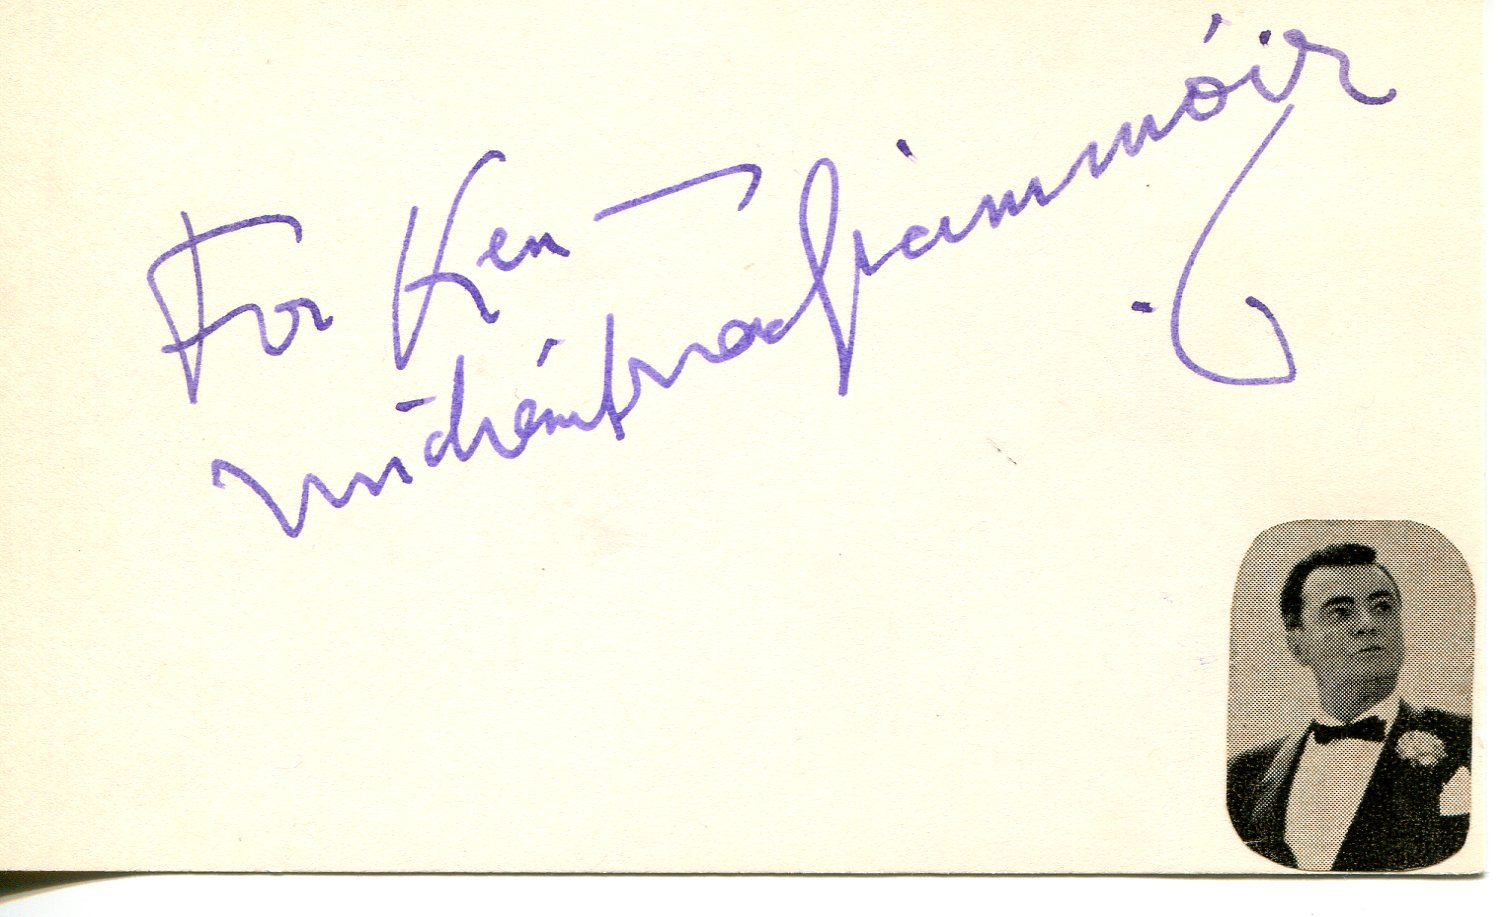 For Ken —
micheál mac Liammóir